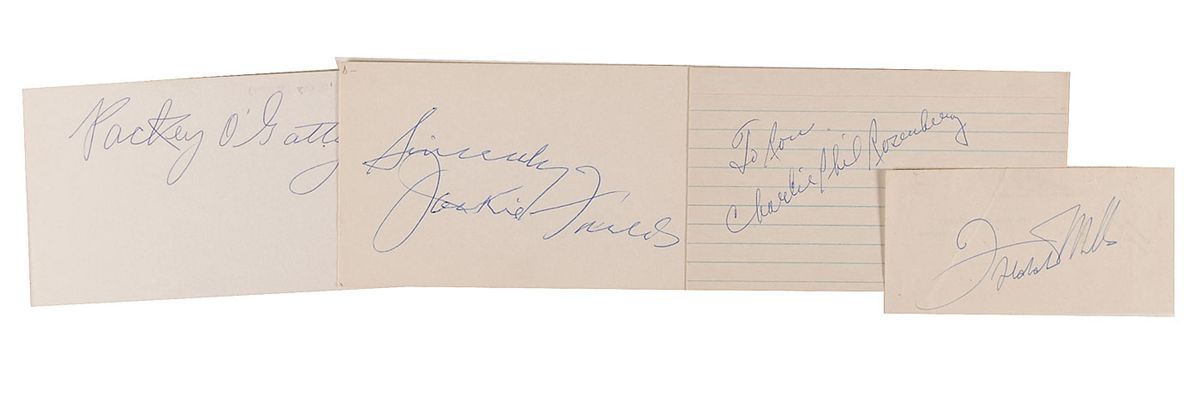 Packey O'Gatty
Sincerely
Jackie Fields
To Lou
Charlie Phil Rosenberg
Freddie Mills